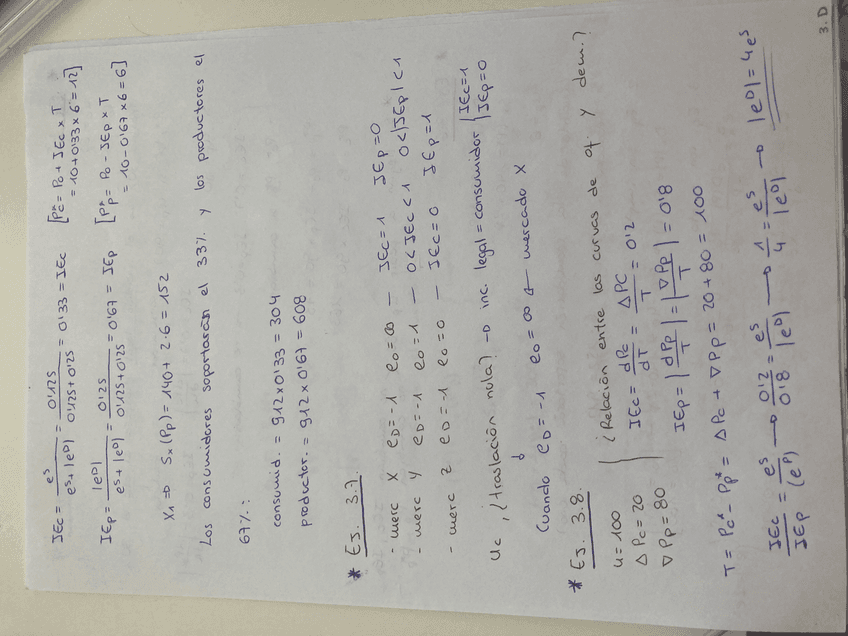 JEc = eˢ / (eˢ + |eᴰ|) = 0'125 / (0'125 + 0'25) = 0'33 = JEc [P*c = Po + JEc × T
= 10 + 0'33 × 6 = 12]
JEp = |eᴰ| / (eˢ + |eᴰ|) = 0'25 / (0'125 + 0'25) = 0'67 = JEp [P*p = Po - JEp × T
= 10 - 0'67 × 6 = 6]
X₁ ⇒ Sx (Pp) = 140 + 2·6 = 152
Los consumidores soportarán el 33% y los productores el
67% :
consumid. = 912 x 0'33 = 304
productor. = 912 x 0'67 = 608
* EJ. 3.7.
- merc X eD = -1 eo = ∞ — JEc = 1 JEp = 0
- merc y eD = -1 eo = 1 — 0 < JEc < 1 0 < |JEp| < 1
- merc z eD = -1 eo = 0 — JEc = 0 JEp = 1
uc, ¿traslación nula? → inc. legal = consumidor { JEc = 1
JEp = 0
Cuando eD = -1 eo = ∞ ← mercado X
* EJ. 3.8.
u = 100 ¿Relación entre las curvas de of. y dem.?
ΔPc = 20 JEc = dPc / dT = ΔPC / T = 0'2
∇Pp = 80 JEp = |dPp / T| = |∇Pp / T| = 0'8
T = Pc* - Pp* = ΔPc + ∇Pp = 20 + 80 = 100
JEc / JEp = eˢ / (eᴾ) → 0'2 / 0'8 = eˢ / |eᴰ| → 1 / 4 = eˢ / |eᴰ| → |eᴰ| = 4eˢ
3.D